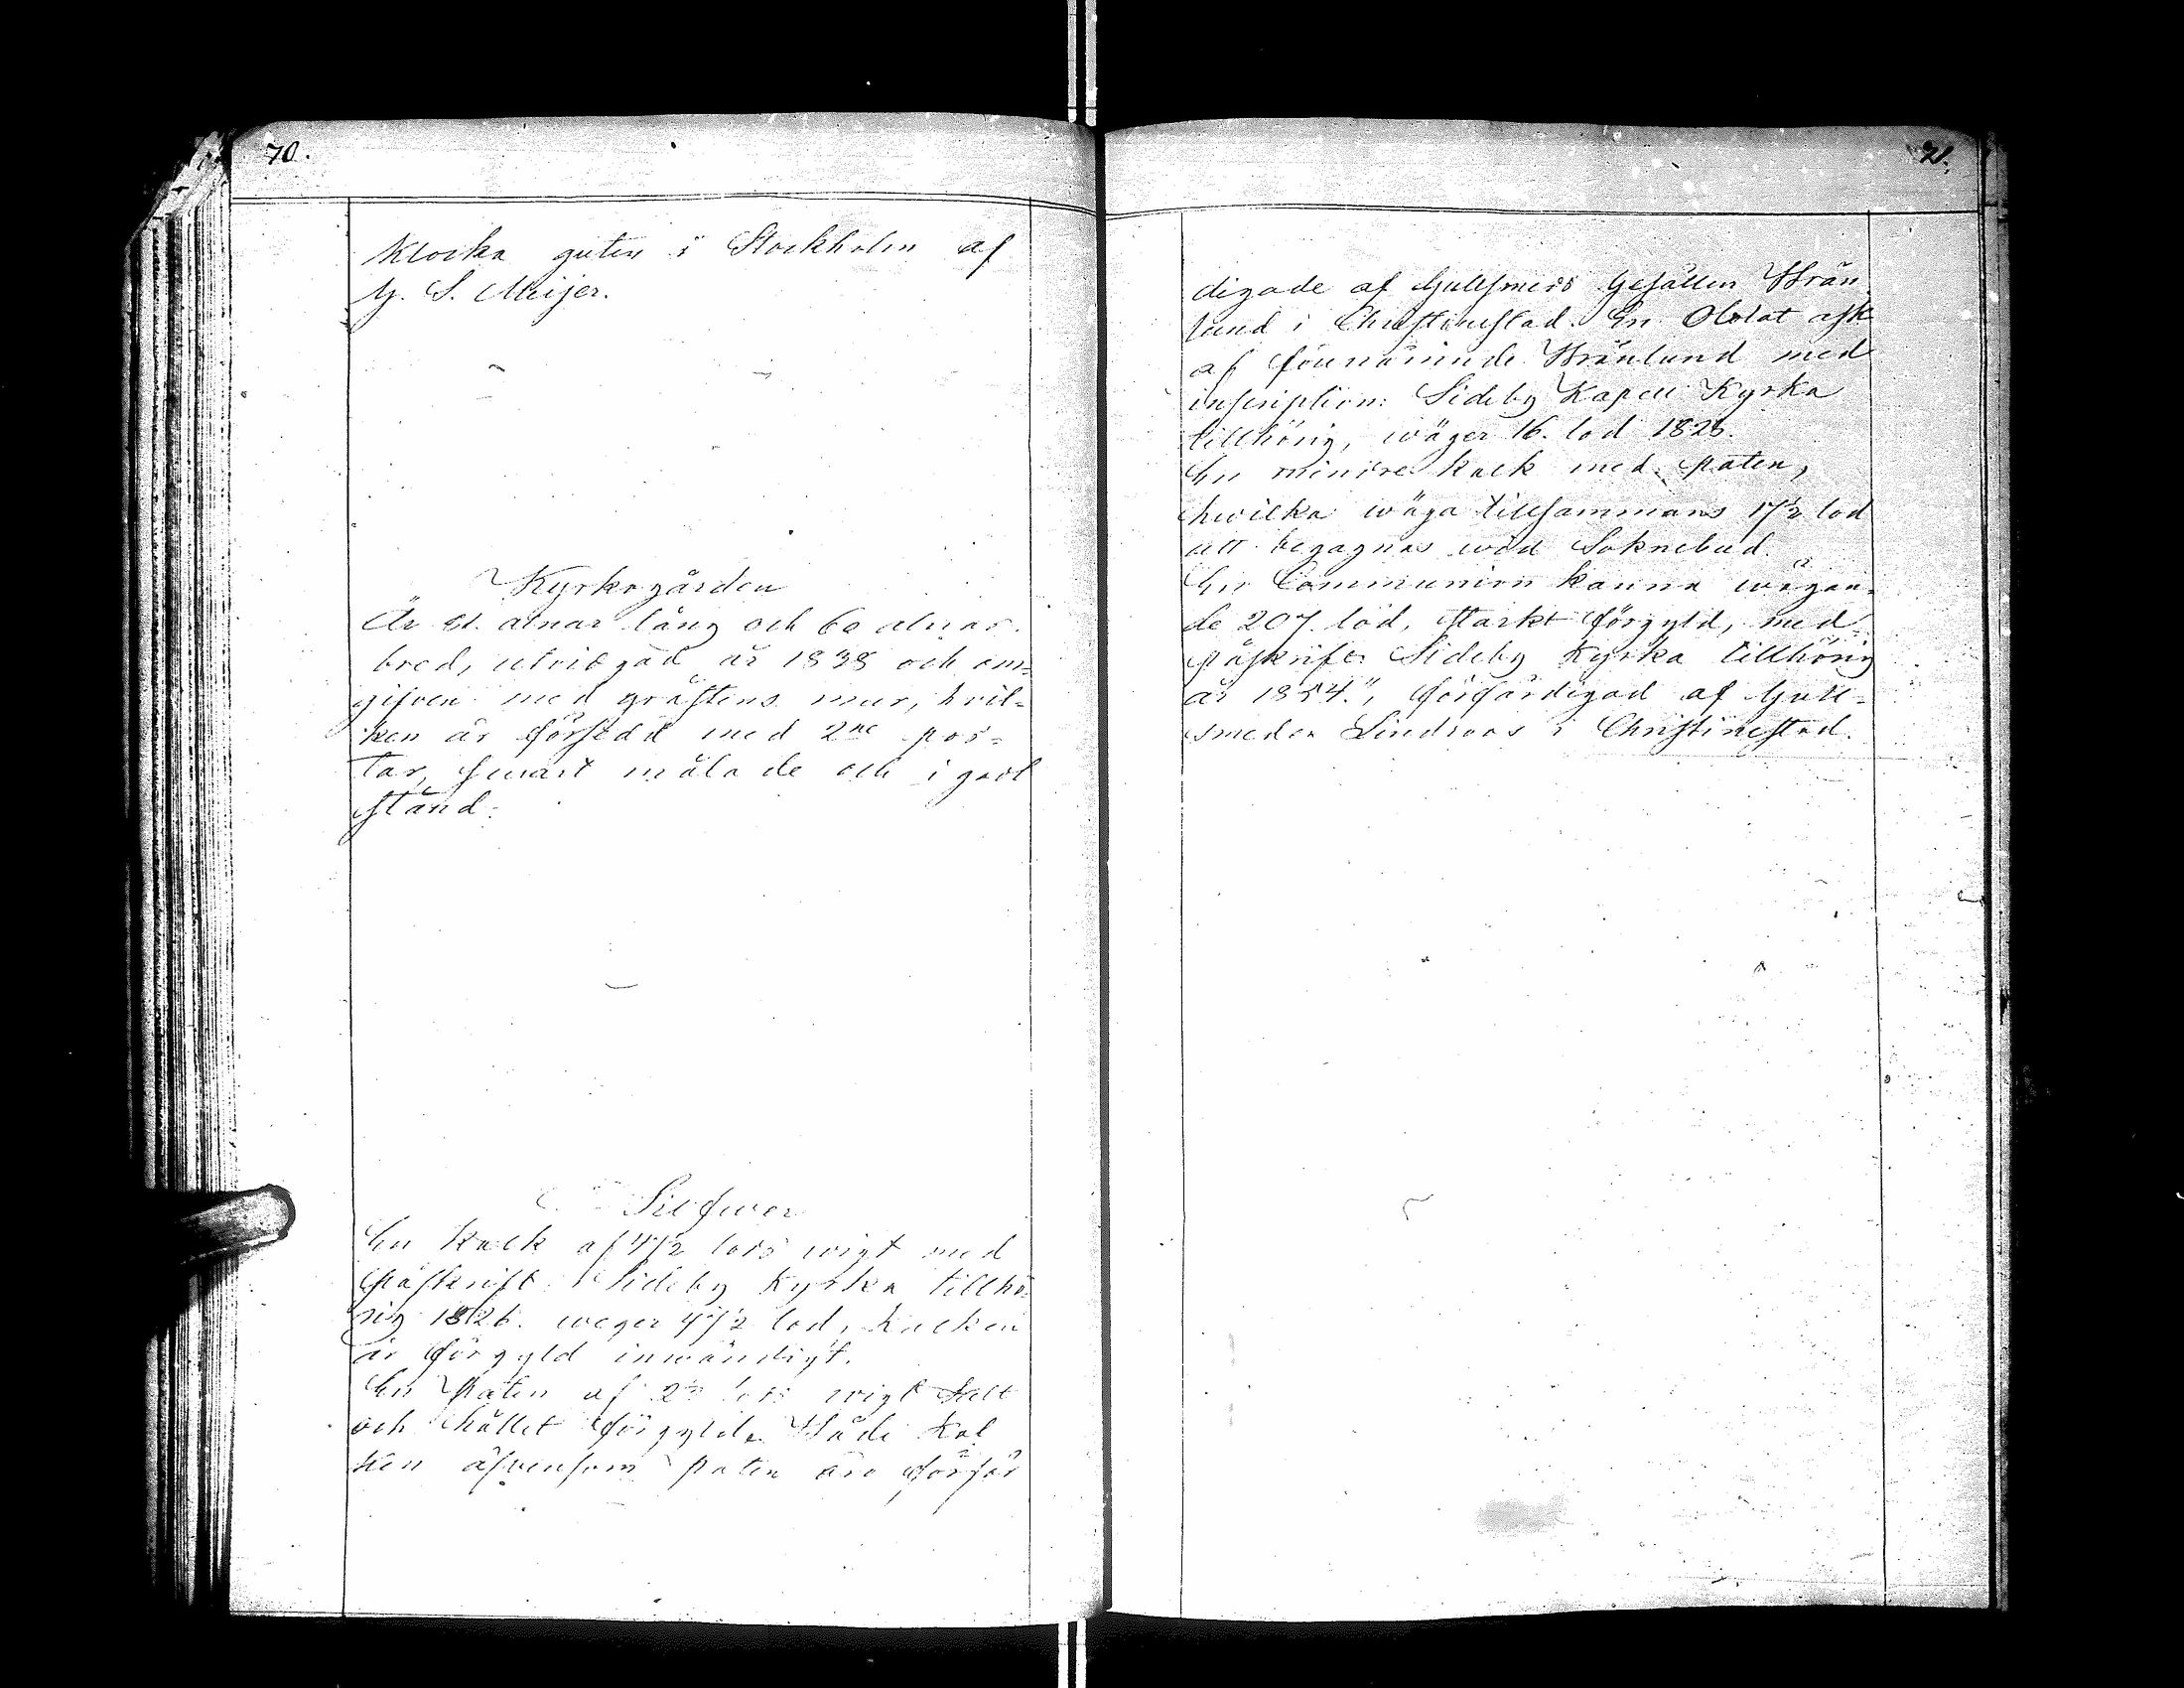 70.
Klocka guten i Stockholm af
G. S. Meijer.
Kyrkogården
Är 81. alnar lång och 60 alnar
bred, utvidgad år 1838 och om=
gifven med gråstens mur, hvil=
ken är försedd med 2ne por=
tar, swart målade och i godt
stånd.
Silfwer
En kalk af 41/2 lods wigt med
påskrift Sideby Kyrka tillhö=
rig 1826. weger 41/2 lod, kalken
är förgyld inwändigt.
En Paten af 2 lods wigt
och hållet förgyld. Både Kal
ken äfvensom paten äro förfär
71.
digade af Gullsmeds Gesällen Brän
lund i Christinestad. En Oblat ask
af förenämnde Bränlund med
inscription: Sideby Kapell Kyrka
tillhörig, wäger 16. lod 1826.
En mindre kalk med paten,
hwilka wäga tillsammans 17 1/2 lod
att begagnas wid Soknebud.
En Communion kanna wägan=
de 207. lod, starkt förgyld, med
påskrift: Sideby Kyrka tillhörig
år 1854.", förfärdigad af Gull=
smeden Lindroos i Christinestad.